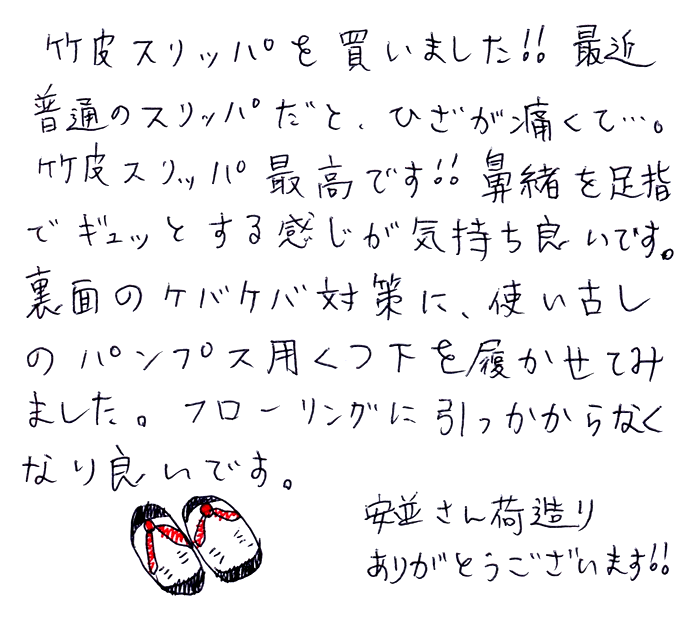 竹皮スリッパを買いました!! 最近
普通のスリッパだと、ひざが痛くて…。
竹皮スリッパ最高です!! 鼻緒を足指
でギュッとする感じが気持ち良いです。
裏面のケバケバ対策に、使い古し
のパンプス用くつ下を履かせてみ
ました。フローリングに引っかからなく
なり良いです。
安並さん荷造り
ありがとうございます!!